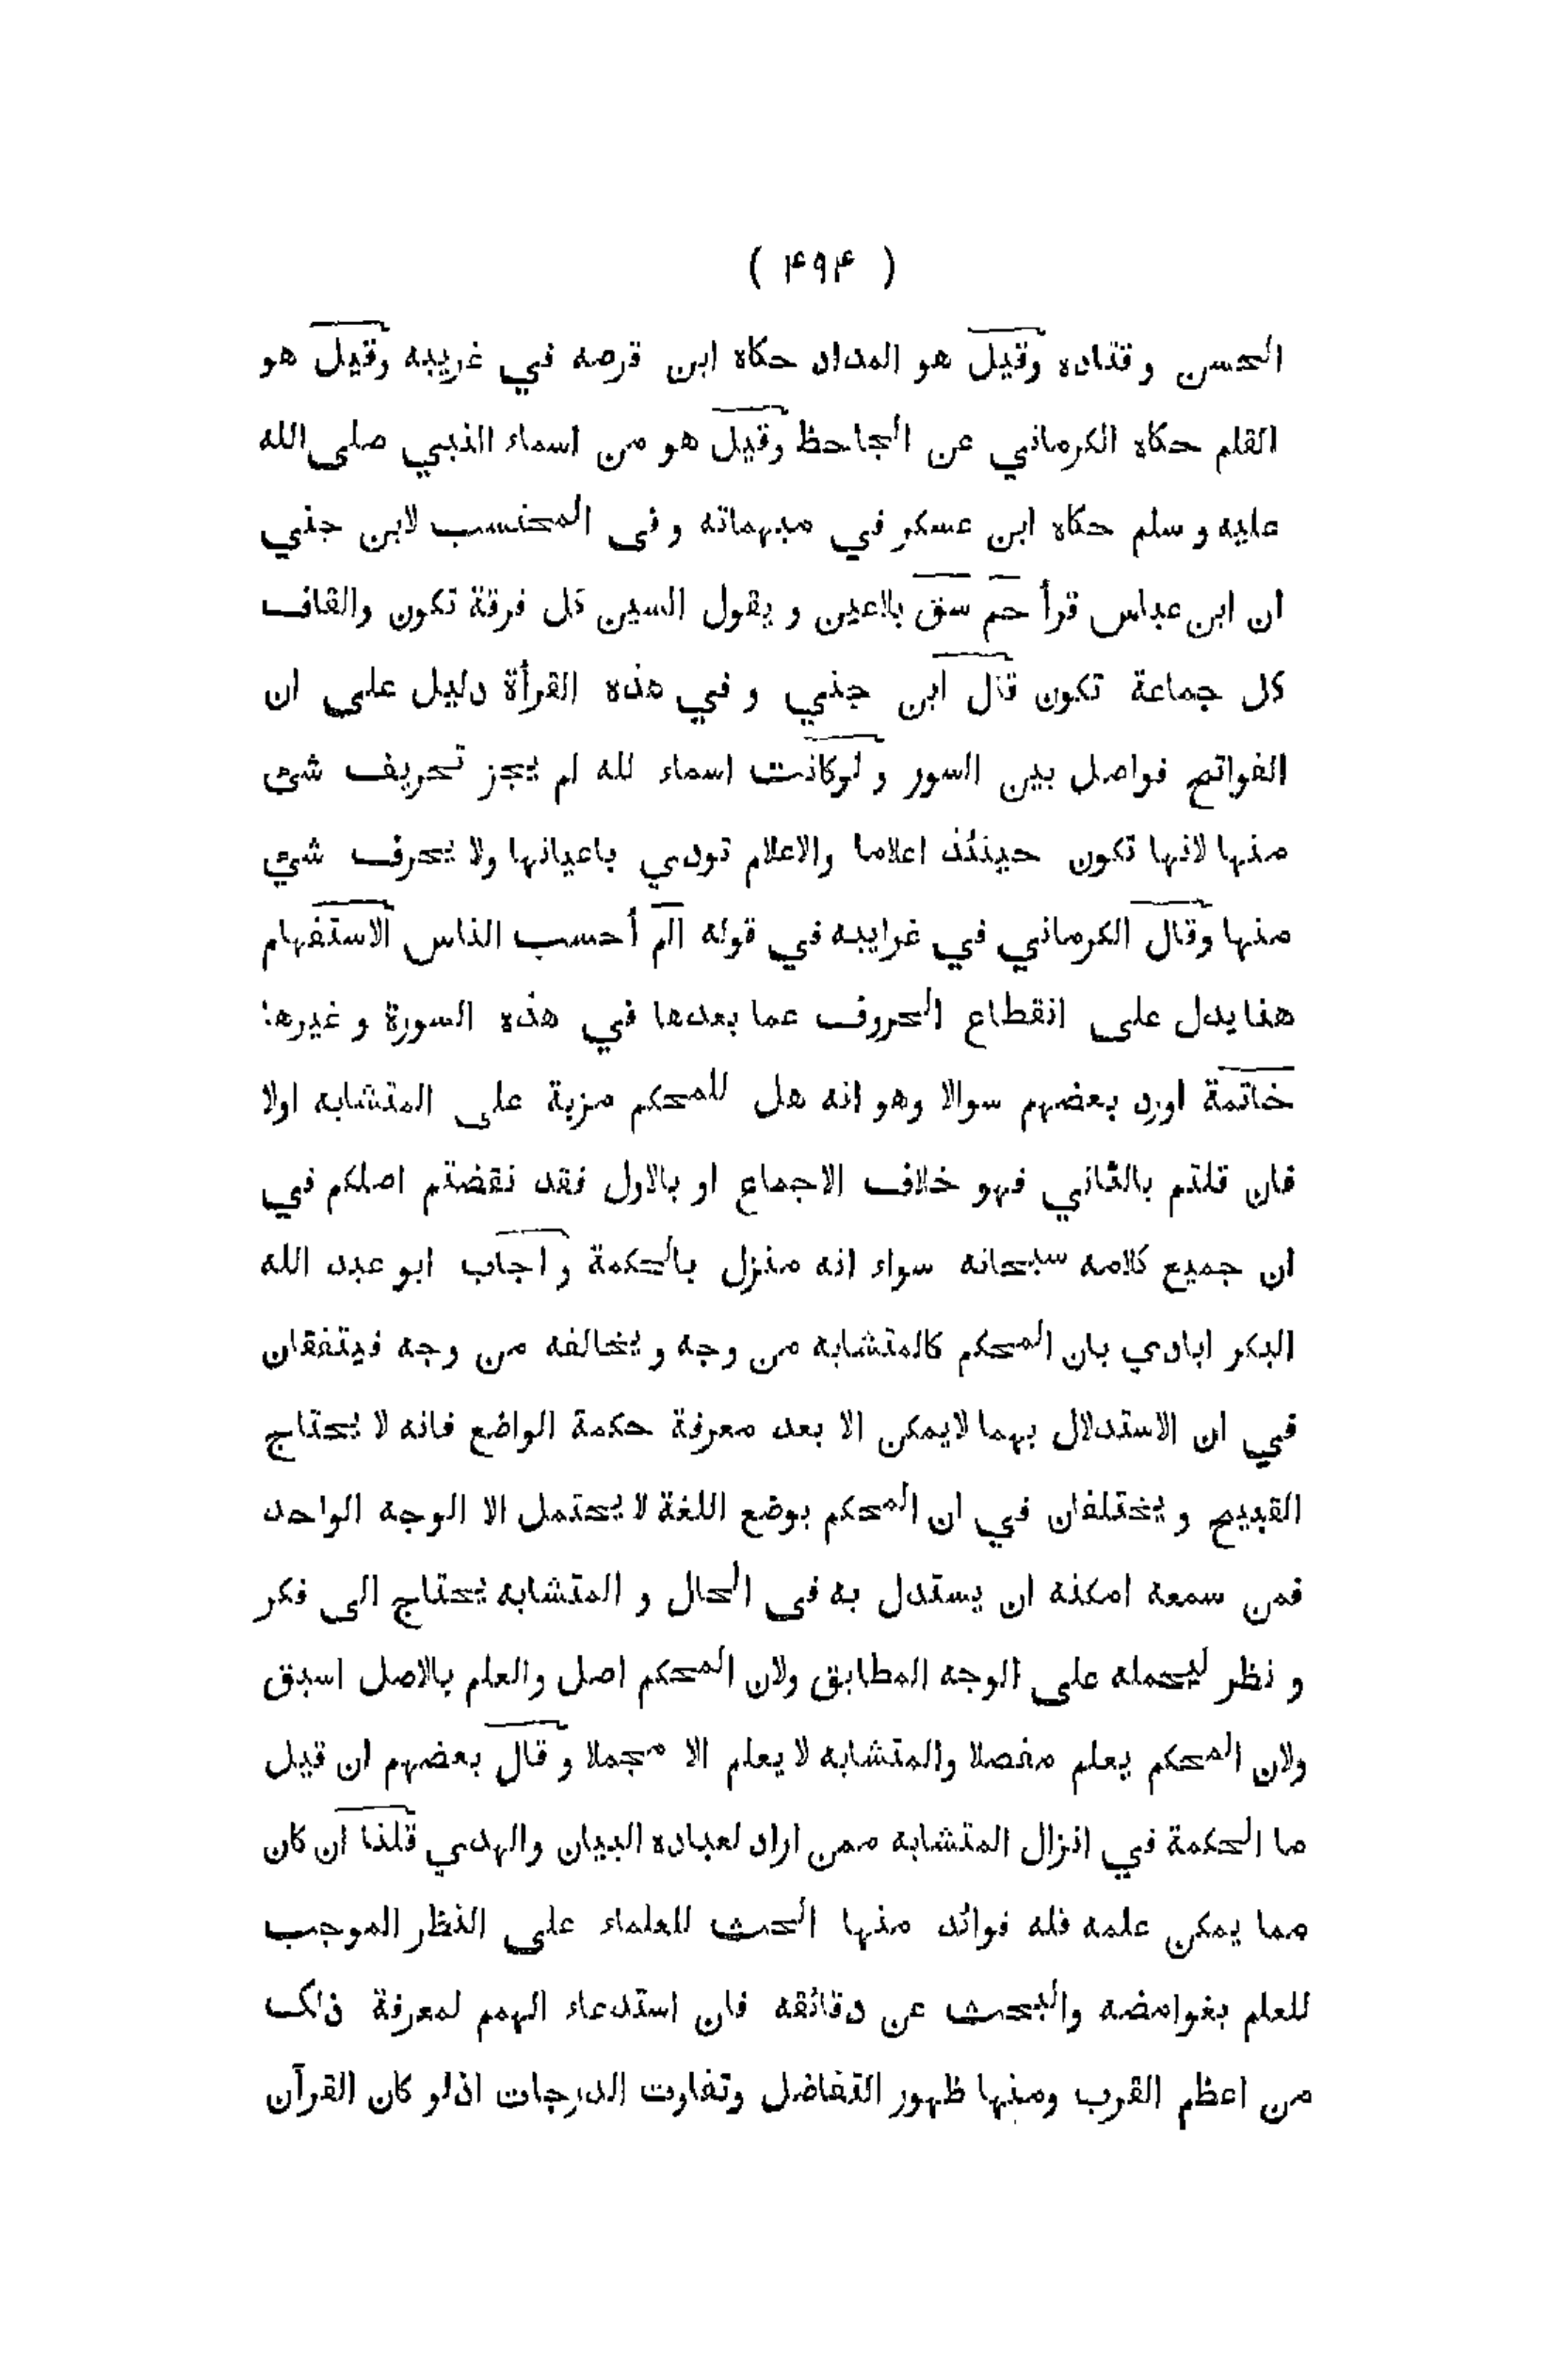 ( ۴۹۴ )
الحسن و قتاده وقيل هو المداد حكاه ابن قرصه في غريبه وقيل هو
القلم حكاه الكرماني عن الجاحظ وقيل هو من اسماء النبي صلى الله
عليه و سلم حكاه ابن عسكر في مبهماته و فى المحتسب لابن جني
ان ابن عباس قرأ حم سق بلاعين و يقول السين كل فرقة تكون والقاف
كل جماعة تكون قال ابن جني و في هذه القرأة دليل على ان
الفواتح فواصل بين السور و لوكانت اسماء لله لم يجز تحريف شى
منها لانها تكون حينئذ اعلاما والاعلام تودي باعيانها ولا يحرف شي
منها وقال الكرماني في غرايبه في قوله الم أحسب الناس الاستفهام
هنايدل على انقطاع الحروف عما بعدها في هذه السورة و غيرها
خاتمة اورد بعضهم سوالا وهو انه هل للمحكم مزية على المتشابه اولا
فان قلتم بالثاني فهو خلاف الاجماع او بالاول فقد نقضتم اصلكم في
ان جميع كلامه سبحانه سواء انه منزل بالحكمة و اجاب ابو عبد الله
البكر ابادي بان المحكم كالمتشابه من وجه و يخالفه من وجه فيتفقان
في ان الاستدلال بهما لايمكن الا بعد معرفة حكمة الواضع فانه لا يحتاج
القبيح و يختلفان في ان المحكم بوضع اللغة لا يحتمل الا الوجه الواحد
فمن سمعه امكنه ان يستدل به فى الحال و المتشابه يحتاج الى فكر
و نظر ليحمله على الوجه المطابق ولان المحكم اصل والعلم بالاصل اسبق
ولان المحكم يعلم مفصلا والمتشابه لا يعلم الا مجملا و قال بعضهم ان قيل
ما الحكمة في انزال المتشابه ممن اراد لعباده البيان والهدي قلنا ان كان
مما يمكن علمه فله فوائد منها الحث للعلماء على النظر الموجب
للعلم بغوامضه والبحث عن دقائقه فان استدعاء الهمم لمعرفة ذلك
من اعظم القرب ومنها ظهور التفاضل وتفاوت الدرجات اذلو كان القرآن